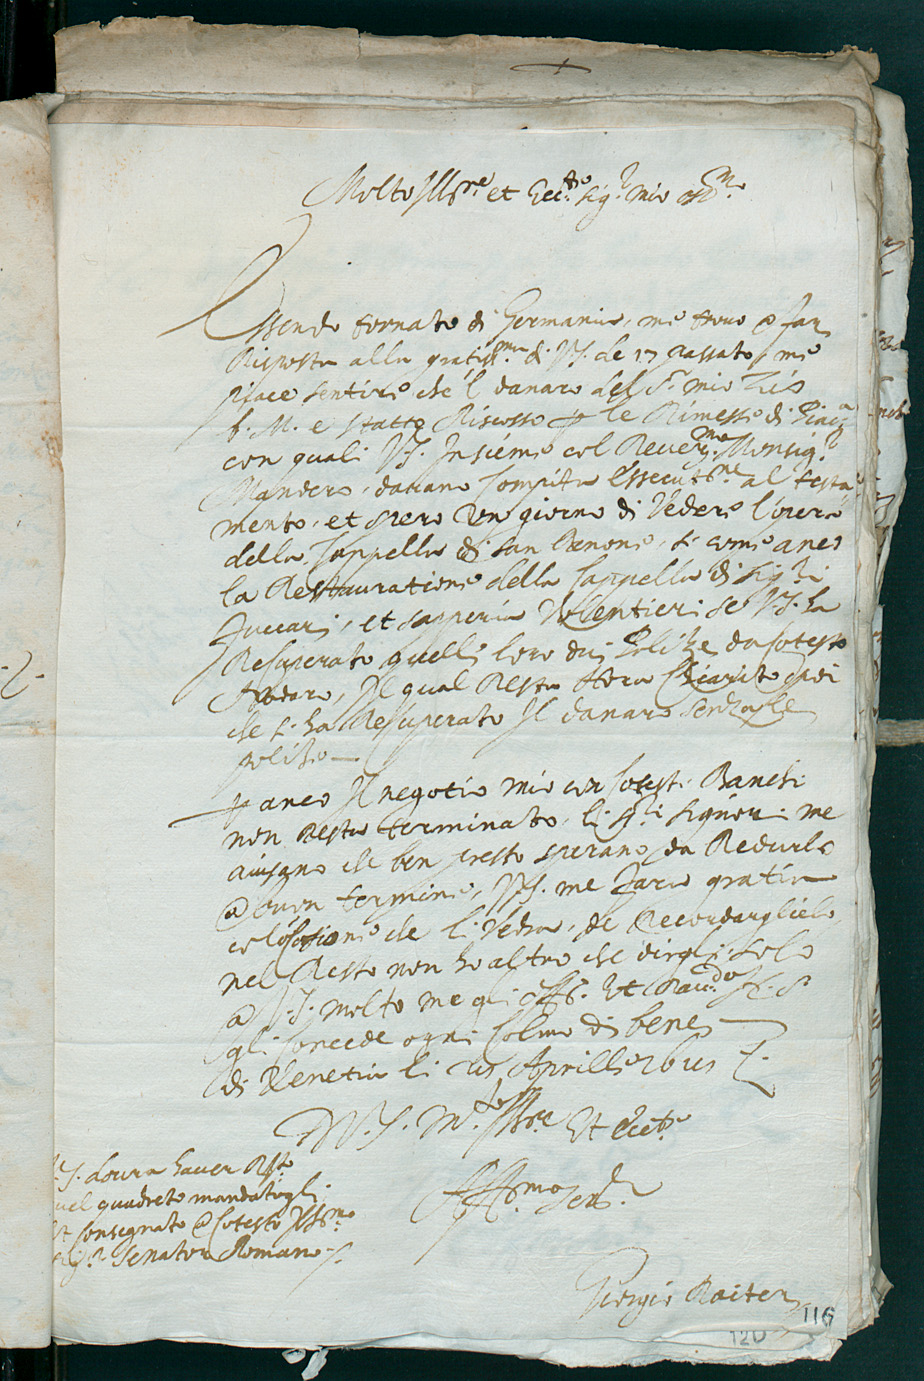 Molto Ill.re et Ecc.te Sig.r mio oss.mo
Essendo tornato di Germania, me trovo a far
Risposta alla gratiss.ma di V.S. de 17 passato, me
piace sentire che'l danaro del S.r mio Zio
b. M. e statto Riscosso p le Rimesse di
con quali V.S. Insieme col Rever.mo Monsig.r
Mandero, davano Compita Essecut.ne al testa
mento, et spero un giorno di Vedere l'opera
della Cappella di San Benone, si come anco
la Restauratione della Cappella di Sig.ri
Zuccari, et sapperia Volentieri se V.S. ha
Resuperato quelli loro dui Polize da cotesto
il qual Resta Hora Chiarito
che si ha Resuperato Il danaro senza le
polize
p anco Il negotio mio con cotesti Banchi
non Resta terminato, li s.ri Signori me
avisano che ben presto sperano da Redurlo
a buon termine, V.S. me fara gratia
che li Vedra, de Recordarglielo,
nel Resto non ho altro che dirgli solo
a V.S. molto me gli off.o Et N. S.
gli Concede ogni Colmo di bene
di Venetia li Aprille
D V. S. M.to Ill.re Et Ecc.te
Aff.mo Ser.r
Giorgio Raiter
V.S. dovra haver
quel quadreto mandatogli
Et Consegnato a Cotesto Ill.mo
Sig.r Senator Romano
116
120